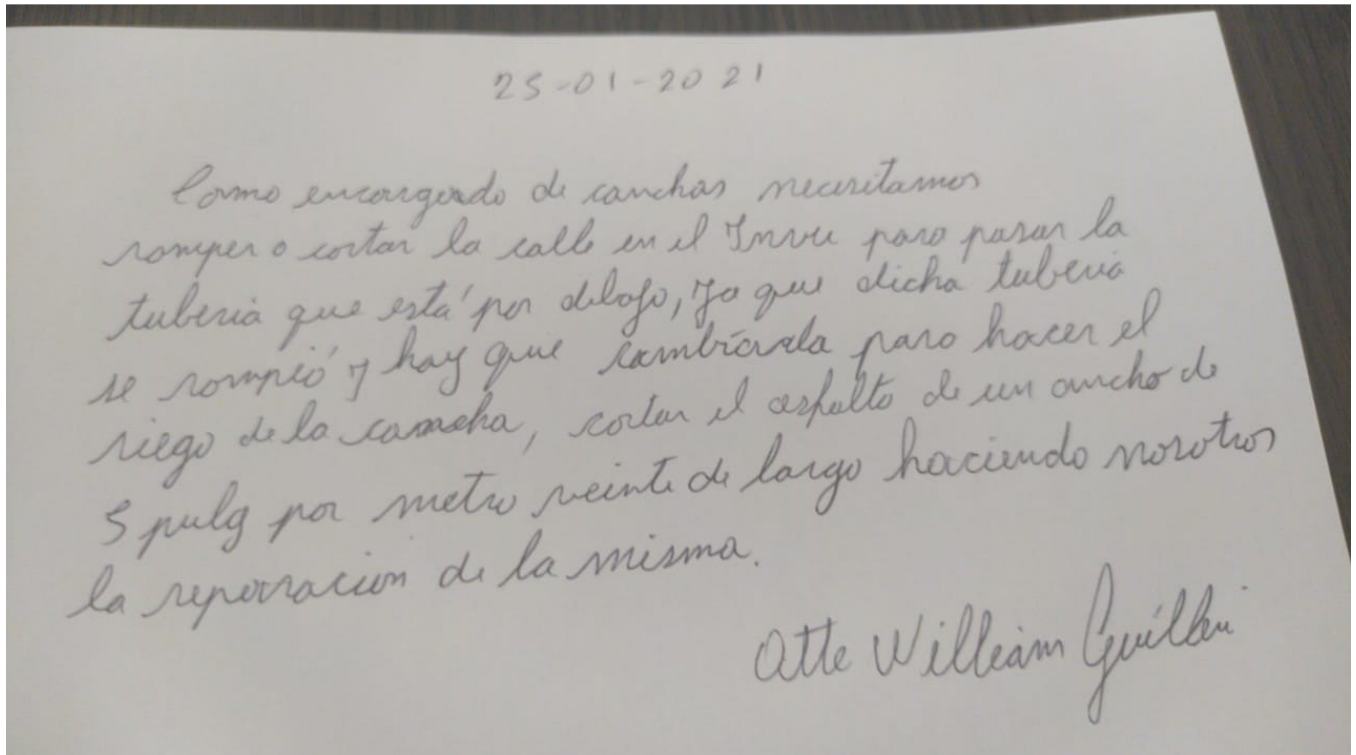 25-01-2021
Como encargado de canchas necesitamos
romper o cortar la calle en el Invu para pasar la
tuberia que está por debajo, ya que dicha tuberia
se rompió y hay que cambiarla para hacer el
riego de la cancha, cortar el asfalto de un ancho de
5 pulg por metro veinte de largo haciendo nosotros
la reparracion de la misma.
Atte William Guillén